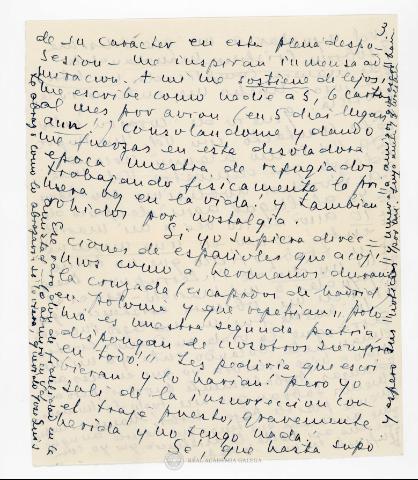 3
de su carácter en esta plena despo-
sesion - me inspiran inmensa ad
miracion. A mi me sostiene de lejos,
me escribe como nadie a 5, 6 cartas
al mes por avion (en 5 dias llegan
aun!!) consolandome y dando
me fuerzas en esta desoladora
epoca nuestra de refugiados
trabajando fisicamente la pri
mera vez en la vida! y tambien
por nostalgia.
Si yo supiera direc
ciones de españoles que acoji
mos como a hermanos durante
la cruzada (escapados de Madrid
en Polonia y que repetian, "Polo
nia es nuestra segunda patria,
dispongan de nosotros siempre
en todo!" Les pediria que escri
bieran y lo harian! pero yo
sali de la insurreccion con
el traje puesto, gravemente
herida y no tengo nada.
Sé, que hasta supo
Ese raro don de fidelidad en la
amistad
y espero sus noticias
REAL ACADEMIA GALEGA